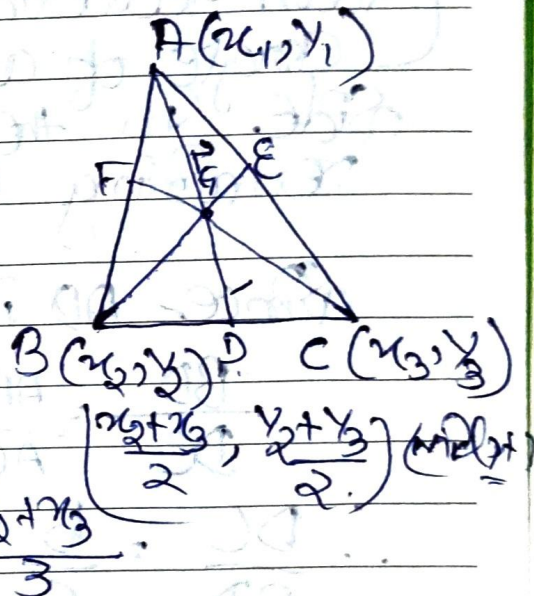 A(x₁, y₁)
F
2
G
E
1
B(x₂, y₂)
D
C(x₃, y₃)
(x₂+x₃/2, y₂+y₃/2) (midpt
2+x₃
3